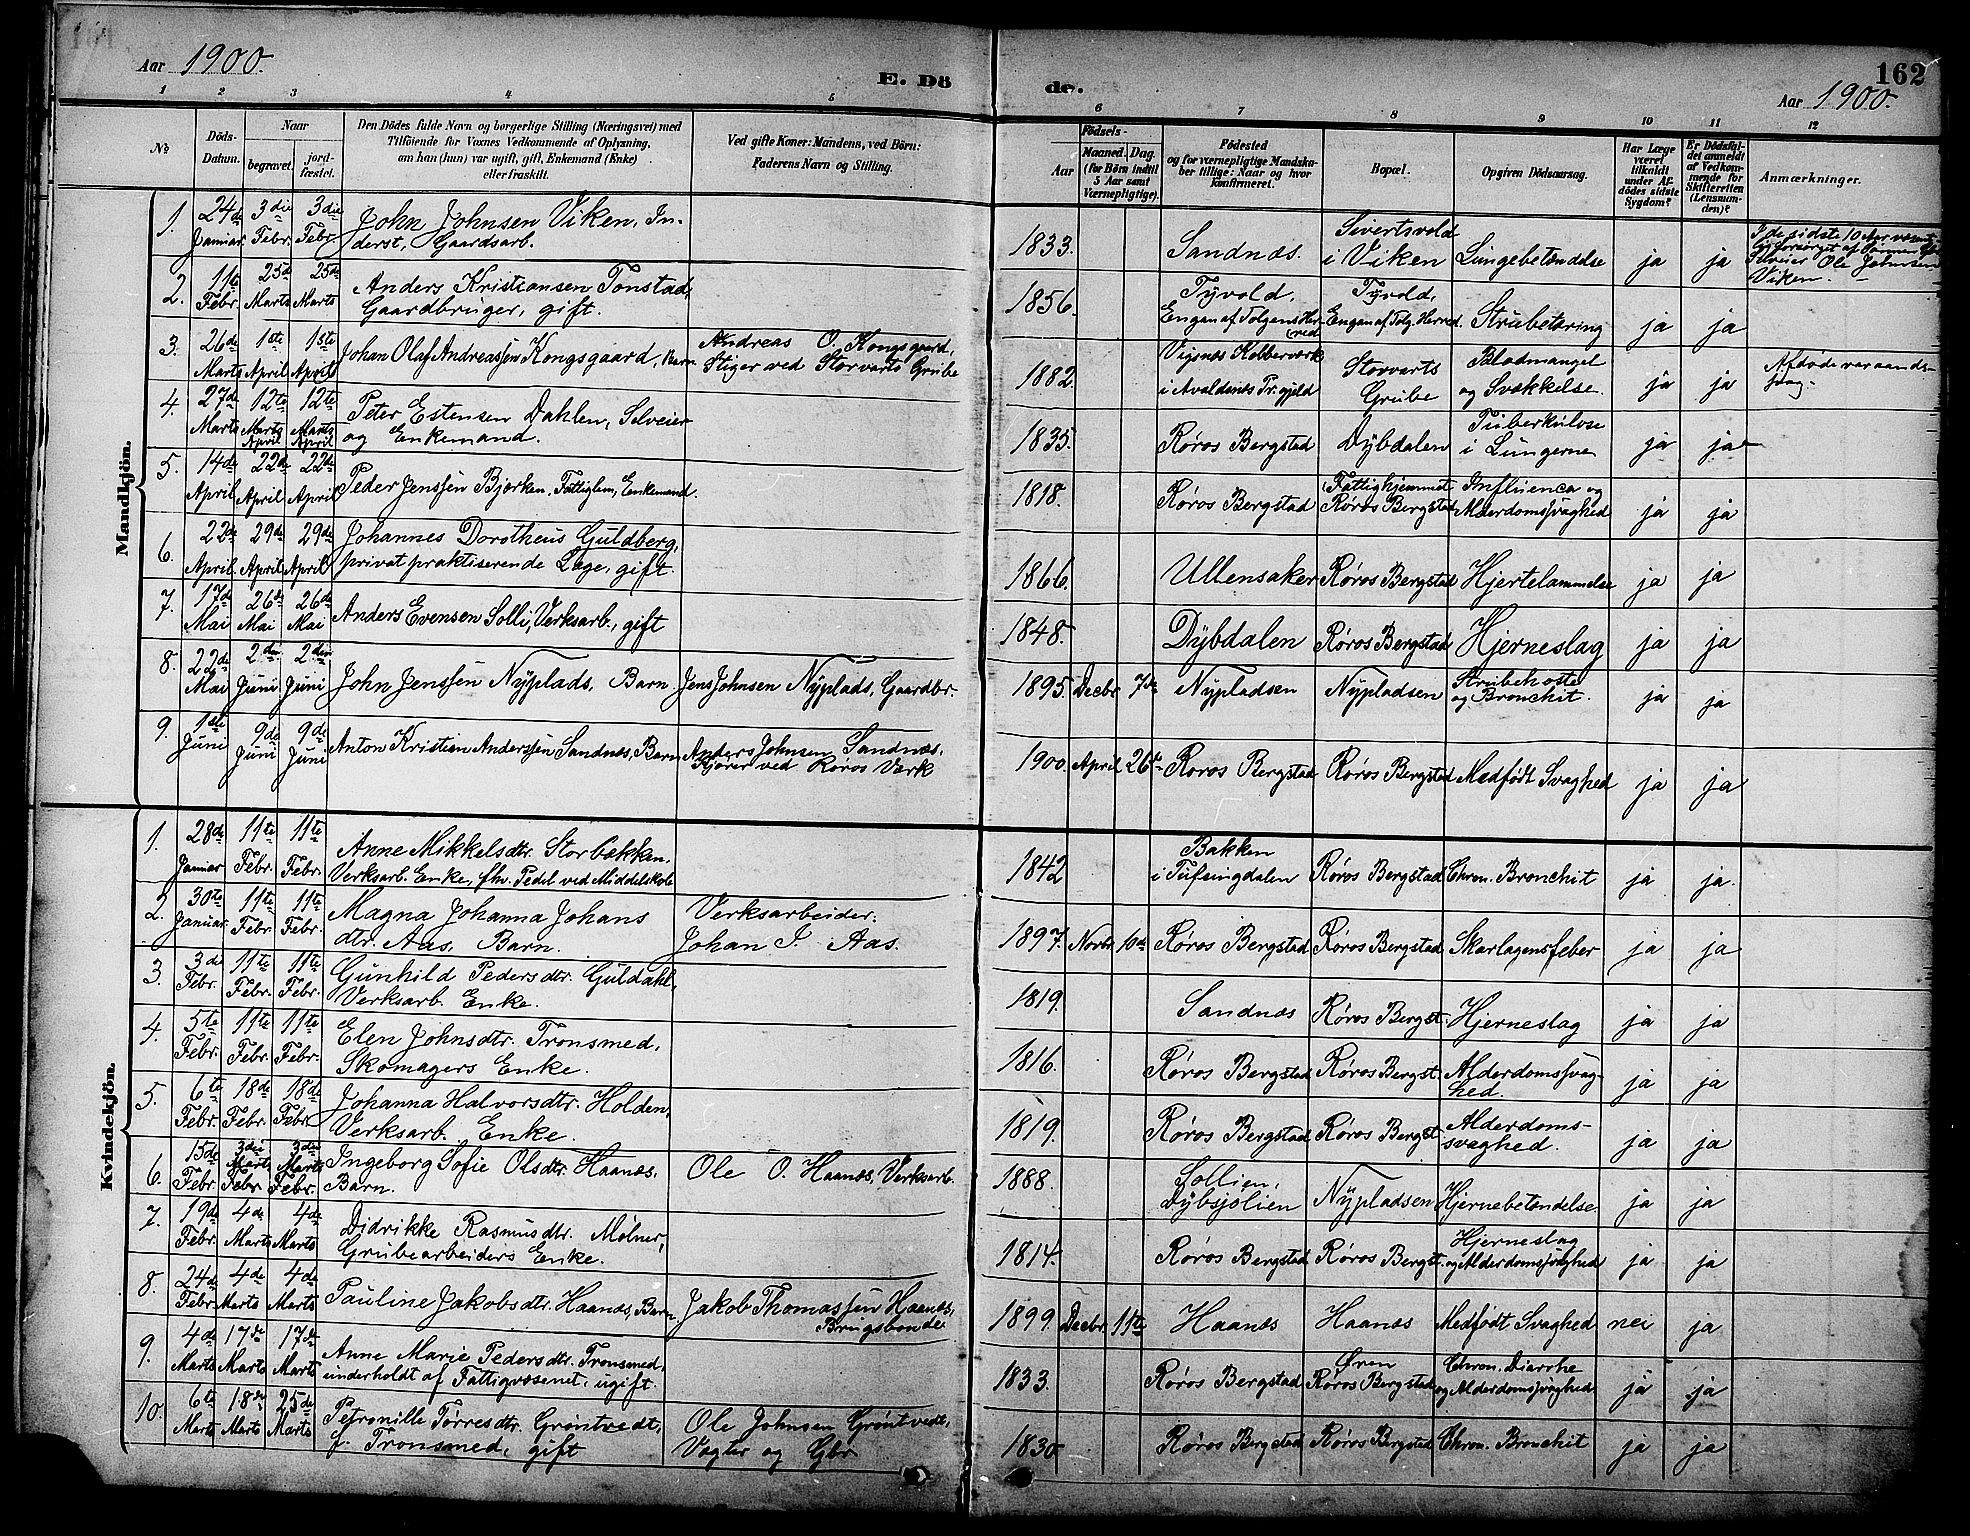 Aar 1900.
E. Dö
de.
162
Aar 1900.
1 2 3 4 5 6 7 8 9 10 11 12
No
Döds-
Datum.
Naar
begravet.
jord-
fæstet.
Den Dödes fulde Navn og borgerlige Stilling (Næringsvei) med
Tilföiende for Voxnes Vedkommende af Oplysning,
om han (hun) var ugift, gift, Enkemand (Enke)
eller fraskilt.
Ved gifte Koner: Mandens, ved Börn:
Faderens Navn og Stilling.
Födsels-
Aar
Maaned. Dag.
(for Börn indtil
5 Aar samt
Værnepligtige).
Födested
og for værnepligtige Mandska-
ber tillige: Naar og hvor
konfirmeret.
Bopæl.
Opgiven Dödsaarsag.
Har Læge
været
tilkaldt
under Af-
dödes sidste
Sygdom?
Er Dödsfal-
det anmeldt
af Vedkom-
mende for
Skifteretten
(Lensman-
den)?
Anmærkninger.
Mandkjön.
1.
24de
Januar
3die
Febr.
3die
Febr.
John Johnsen Viken, In-
derst, Gaardsarb.
1833.
Sandnæs.
Sivertsvold
i Viken
Lungebetændelse
ja
ja
I de sidste 10 Aar væsent-
lig forsørget af Sønnen
Selveier Ole Johnsen
Viken.
2.
11te
Febr.
25de
Marts
25de
Marts
Anders Kristiansen Tonstad,
Gaardbruger, gift.
1856.
Tyvold,
Engan af Tolgens Her-
red
Tyvold,
Engan af Tolg. Herred
Strubetæring
ja
ja
3.
26de
Marts
1ste
April
1ste
April
Johan Olaf Andreassen Kongsgaard, Barn
Andreas O. Kongsgaard,
Stiger ved Storvarts Grube
1882.
Vigsnæs Kobberværk
i Avaldsnæs Pr.gjeld
Storvarts
Grube
Blodmangel
og Svækkelse.
ja
ja
Afdøde var aands-
svag.
4.
27de
Marts
12te
Marts
April
12te
Marts
April
Peter Estensen Dahlen, Selveier
og Enkemand.
1835.
Røros Bergstad
Dybdalen
Tuberkulose
i Lungerne
ja
ja
5.
14de
April
22de
April
22de
April
Peder Jenssen Bjørken, Fattiglem, Enkemand.
1818.
Røros Bergstad
Fattighjemmet
Røros Bergstad
Influenca og
Alderdomssvaghed
ja
ja
6.
22de
April
29de
April
29de
April
Johannes Dorotheus Guldberg,
privatpraktiserende Læge, gift
1866.
Ullensaker
Røros Bergstad
Hjertelammelse
ja
ja
7.
17de
Mai
26de
Mai
26de
Mai
Anders Evensen Solli, Verksarb., gift
1848.
Dybdalen
Røros Bergstad
Hjerneslag
ja
ja
8.
22de
Mai
2den
Juni
2den
Juni
John Jenssen Nyplads, Barn
Jens Johnsen Nyplads, Gaardbr.
1895. Decbr. 7de
Nypladsen
Nypladsen
Strubehoste
og Bronchit.
ja
ja
9.
1ste
Juni
9de
Juni
9de
Juni
Anton Kristian Anderssen Sandnæs, Barn
Anders Johnsen Sandnæs,
Kjører ved Røros Værk
1900. April 26de
Røros Bergstad
Røros Bergstad
Medfødt Svaghed
ja
ja
Kvindekjön.
1.
28de
Januar
11te
Febr.
11te
Febr.
Anne Mikkelsdtr. Storbækken,
Verksarb. Enke, fhv. Pedel ved Middelskole
1842
Bakken
i Tufsingdalen
Røros Bergstad
Chron. Bronchit
ja
ja.
2.
30te
Januar
11te
Febr.
11te
Febr.
Magna Johanna Johans
dtr. Aas, Barn.
Verksarbeider.
Johan J. Aas.
1897. Novbr. 10de
Røros Bergstad
Røros Bergstad
Skarlagensfeber
ja
ja
3.
3de
Febr.
11te
Febr.
11te
Febr.
Gunhild Pedersdtr. Guldahl,
Verksarb. Enke.
1819.
Sandnæs
Røros Bergst.
Hjerneslag
ja
ja
4.
5te
Febr.
11te
Febr.
11te
Febr.
Elen Johnsdtr. Tronsmed,
Skomagers Enke.
1816.
Røros Bergstad
Røros Bergst.
Alderdomssvag-
hed.
ja
ja
5.
6te
Febr.
18de
Febr.
18de
Febr.
Johanna Halvorsdtr. Holden,
Verksarb. Enke.
1819.
Røros Bergstad
Røros Bergst.
Alderdoms-
svaghed.
ja
ja
6.
15de
Febr.
3die
Marts
Febr.
3die
Marts
Febr.
Ingeborg Sofie Olsdtr. Haanæs,
Barn.
Ole O. Haanæs, Verksarb.
1888.
Sollien,
Dybsjølien
Nypladsen
Hjernebetændelse.
ja
ja
7.
19de
Febr.
4de
Marts
4de
Marts
Didrikke Rasmusdtr. Mølner,
Grubearbeiders Enke.
1814.
Røros Bergstad
Røros Bergst.
Hjerneslag
og Alderdomssvaghed
ja
ja
8.
24de
Febr.
4de
Marts
4de
Marts
Pauline Jakobsdtr. Haanæs, Barn
Jakob Thomassen Haanæs,
Brugsbonde.
1899. Decbr. 11te
Haanæs
Haanæs
Medfødt Svaghed
nei
ja
9.
4de
Marts
17de
Marts
17de
Marts
Anne Marie Pedersdtr. Tronsmed,
underholdt af Fattigvæsenet, ugift.
1833.
Røros Bergstad
Øren
Røros Bergstad
Chron. Diarrhe
og Alderdomssvaghed
ja
ja
10.
6te
Marts
18de
Marts
25de
Marts
Petronille Tørresdtr. Grøntvedt,
f. Tronsmed, gift
Ole Johnsen Grøntvedt,
Vægter og Gbr
1830
Røros Bergstad
Røros Bergstad
Chron. Bronchit
ja
ja